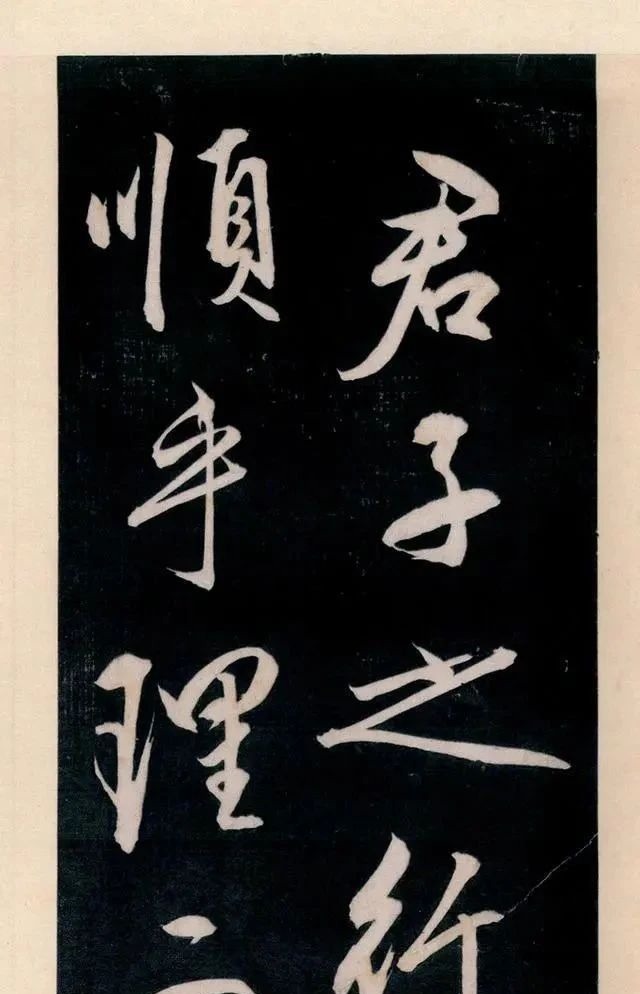 君子之行
順乎理